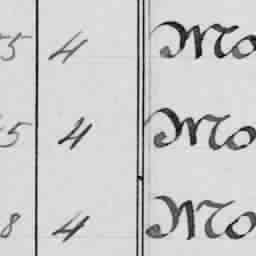 55 4 Mo
45 4 Mo
8 4 Mo